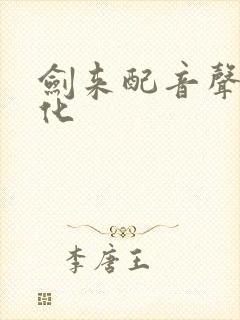 劍来配音聲
化
李唐王